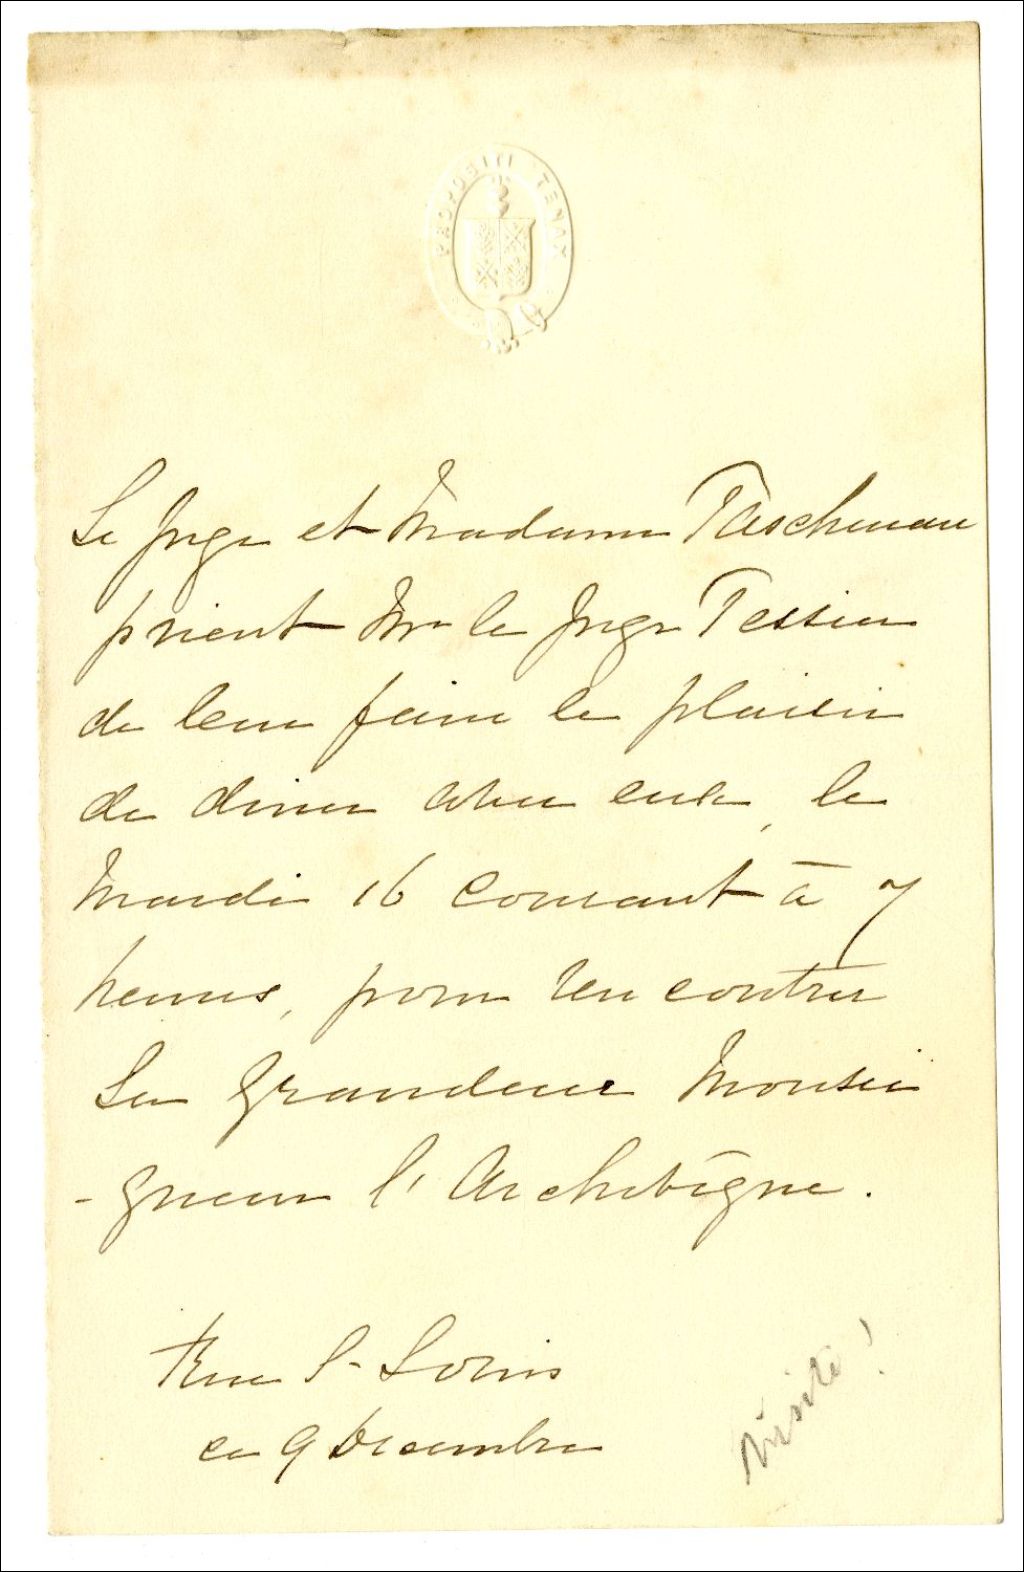 PROPOSITI TENAX
Le Juge et Madame Taschereau
prient Mr le Juge Tessier
de leur faire le plaisir
de diner avec eux, le
Mardi 16 courant à 7
heures, pour rencontrer
Sa Grandeur Monsei
-gneur l'Archevêque.
Rue St Louis
ce 9 Decembre
Visité!